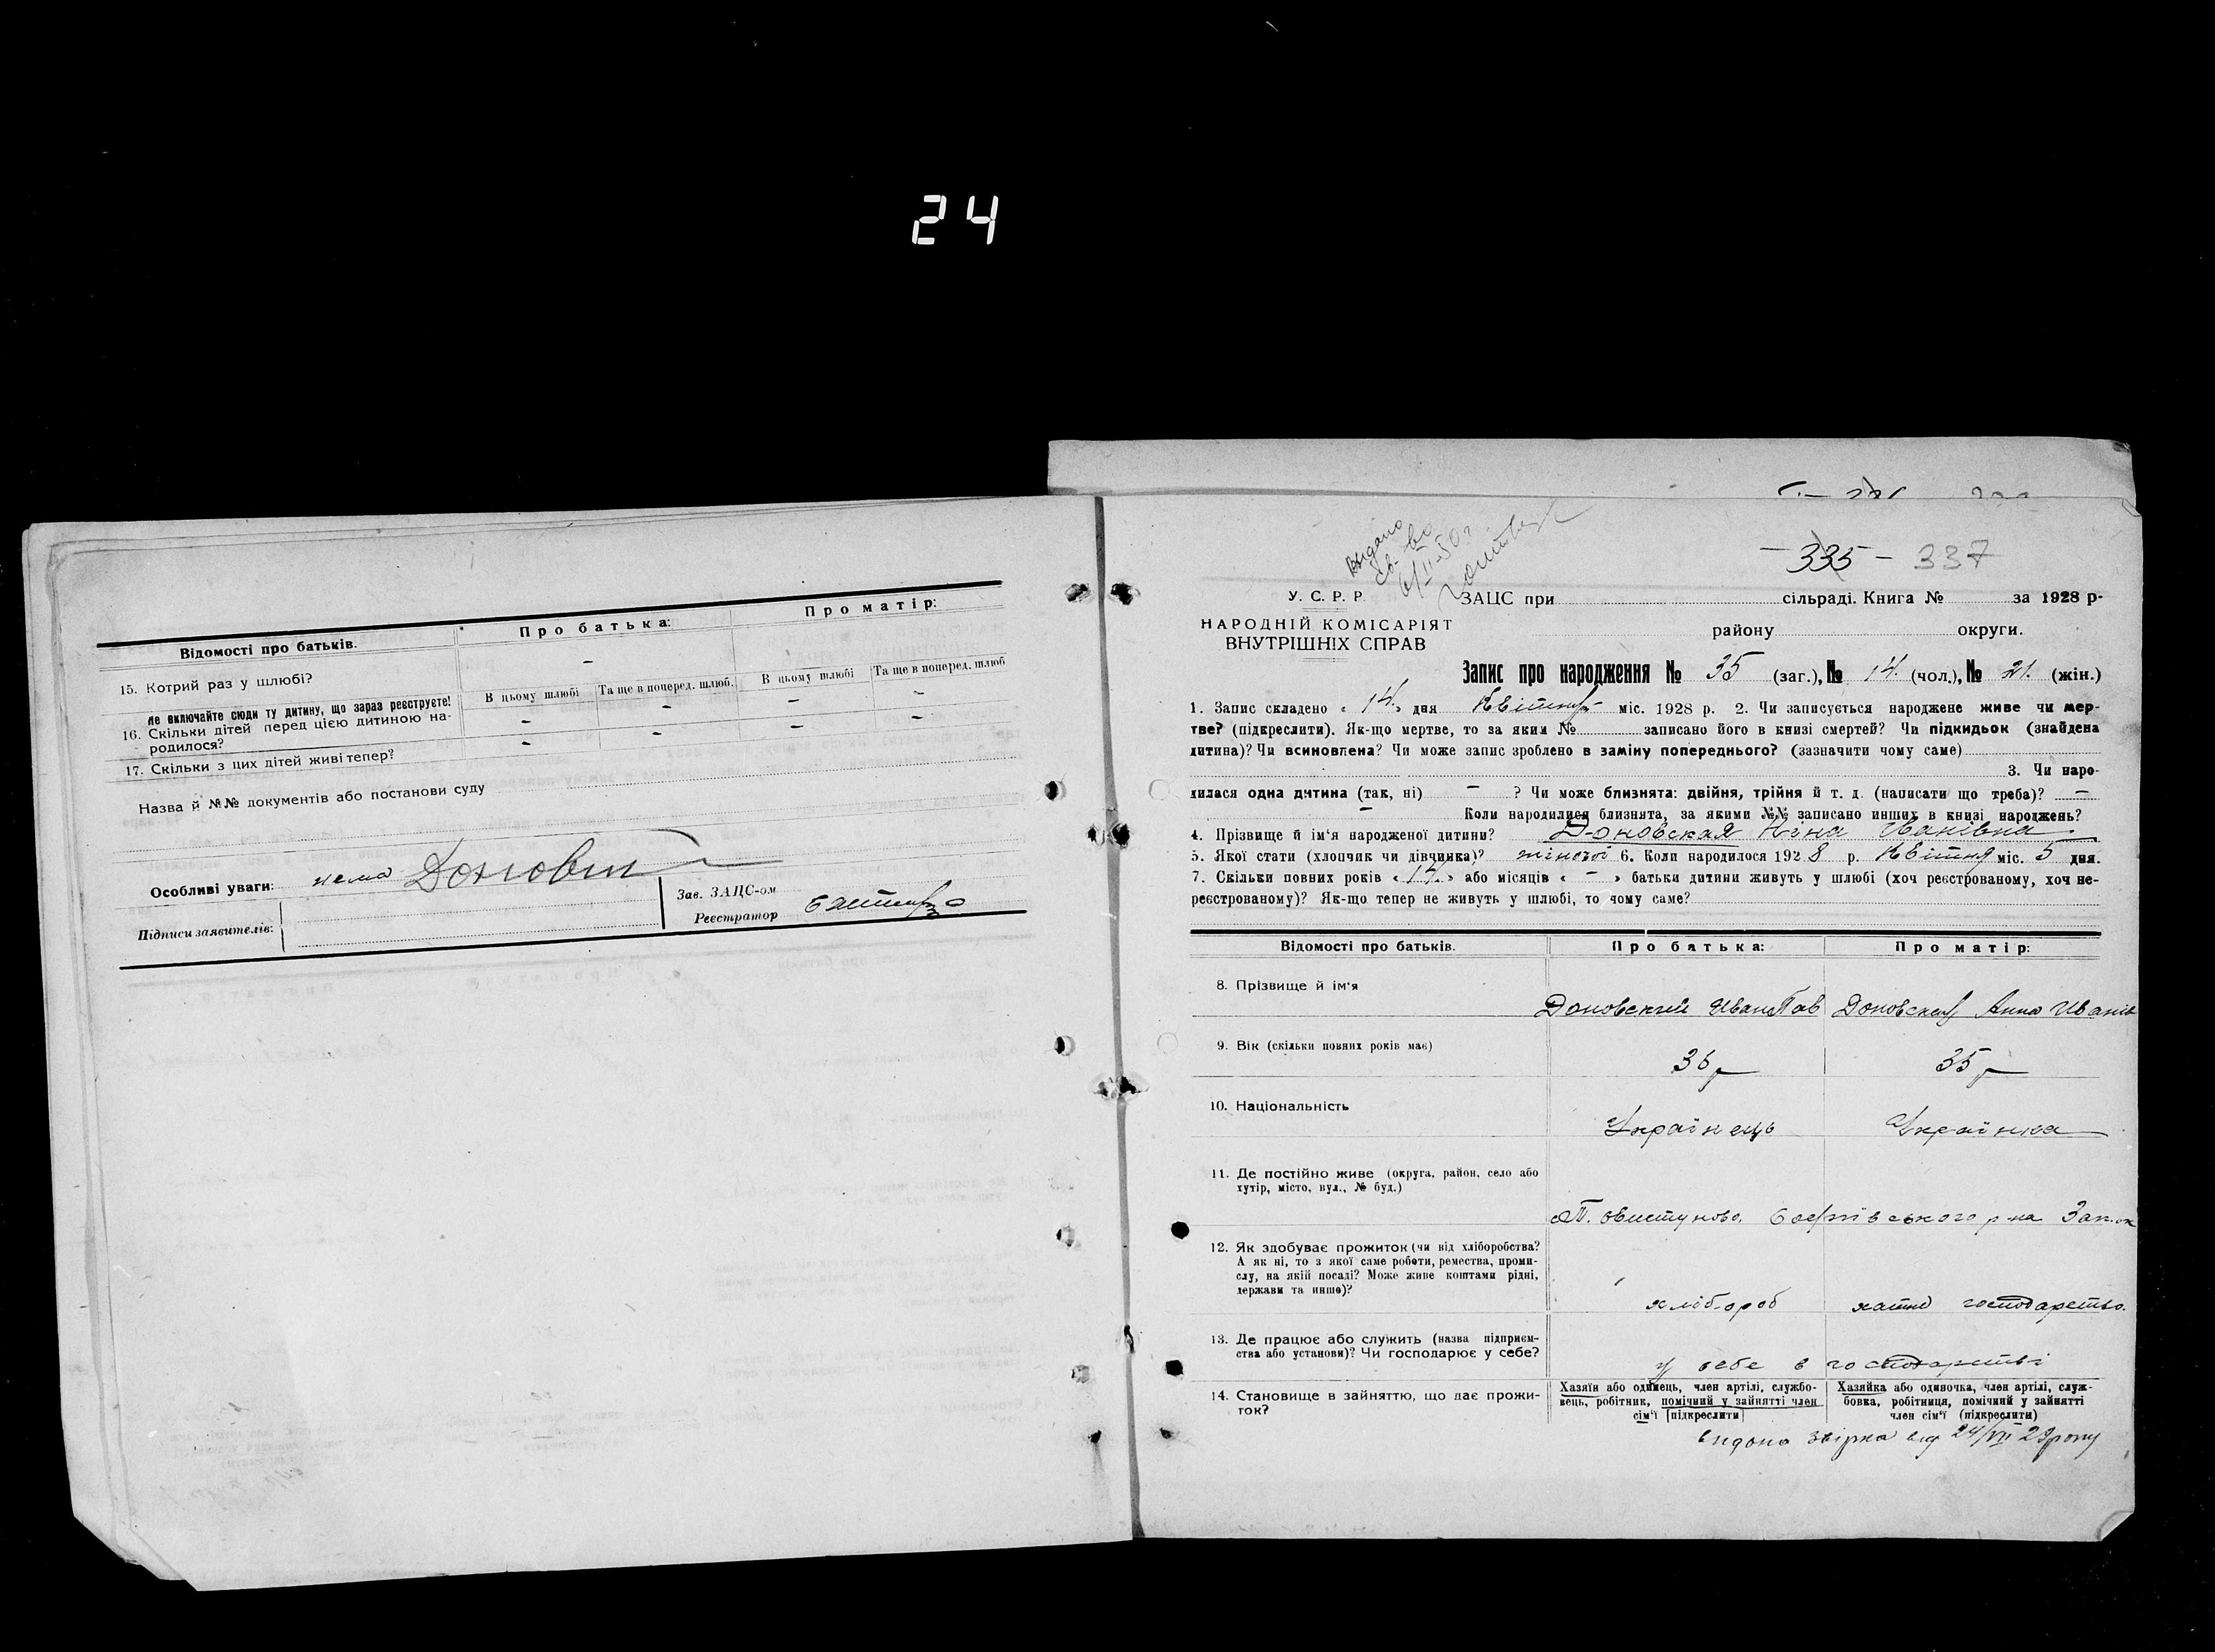 24
Відомості про батьків.
Про батька:
Про матір:
15. Котрий раз у шлюбі?
–
В цьому шлюбі
Та ще в поперед. шлюб.
В цьому шлюбі
Та ще в поперед. шлюб
не включайте сюди ту дитину, що зараз реєструєте!
16. Скільки дітей перед цією дитиною на-
родилося?
– – – –
17. Скільки з цих дітей живі тепер?
– – – –
Назва й №№ документів або постанови суду
Особливі уваги: нема
Підписи заявителів:
Зав. ЗАЦС-ом
Реєстратор
– 335 – 337
Выдано
св-во
У. С. Р. Р.
НАРОДНІЙ КОМІСАРІЯТ
ВНУТРІШНІХ СПРАВ
ЗАЦС при сільраді. Книга № за 1928 р.
району округи.
Запис про народження № 35 (заг.), № 14. (чол.), № 21. (жін.)
1. Запис складено « 14. » дня Квітня міс. 1928 р. 2. Чи записується народжене живе чи мер-
тве? (підкреслити). Як-що мертве, то за яким № записано його в книзі смертей? Чи підкидьок (знайдена
дитина)? Чи всиновлена? Чи може запис зроблено в заміну попереднього? (зазначити чому саме)
3. Чи наро-
дилася одна дитина (так, ні) – ? Чи може близнята: двійня, трійня й т. д. (написати що треба)? –
– Коли народилися близнята, за якими №№ записано инших в книзі народжень?
4. Прізвище й ім'я народженої дитини? Доновская Ніна Іванівна
5. Якої стати (хлопчик чи дівчинка)? жіночої 6. Коли народилося 1928 р. Квітня міс. 5 дня.
7. Скільки повних років « 17. » або місяців « – » батьки дитини живуть у шлюбі (хоч реєстрованому, хоч не-
реєстрованому)? Як-що тепер не живуть у шлюбі, то чому саме?
Відомості про батьків.
Про батька:
Про матір:
8. Прізвище й ім'я
Доновский Иван Пав
Доновская Анна Иванів
9. Вік (скільки повних років має)
36 р
35 р
10. Національність
Українець
Українка
11. Де постійно живе (округа, район, село або
хутір, місто, вул., № буд.)
Софіївського р-на Зап. ок
12. Як здобуває прожиток (чи від хліборобства?
А як ні, то з якої саме роботи, ремества, проми-
слу, на якій посаді? Може живе коштами рідні,
держави та инше)?
хлібороб
хатнє господарство.
13. Де працює або служить (назва підприєм-
ства або установи)? Чи господарює у себе?
у себе в господарстві
14. Становище в зайняттю, що дає прожи-
ток?
Хазяїн або одинець, член артілі, службо-
вець, робітник, помічний у зайнятті член
сім'ї (підкреслити)
Хазяйка або одиночка, член артілі, служ-
бовка, робітниця, помічний у зайнятті
член сім'ї (підкреслити)
видона звірка від 24/VII 28 року